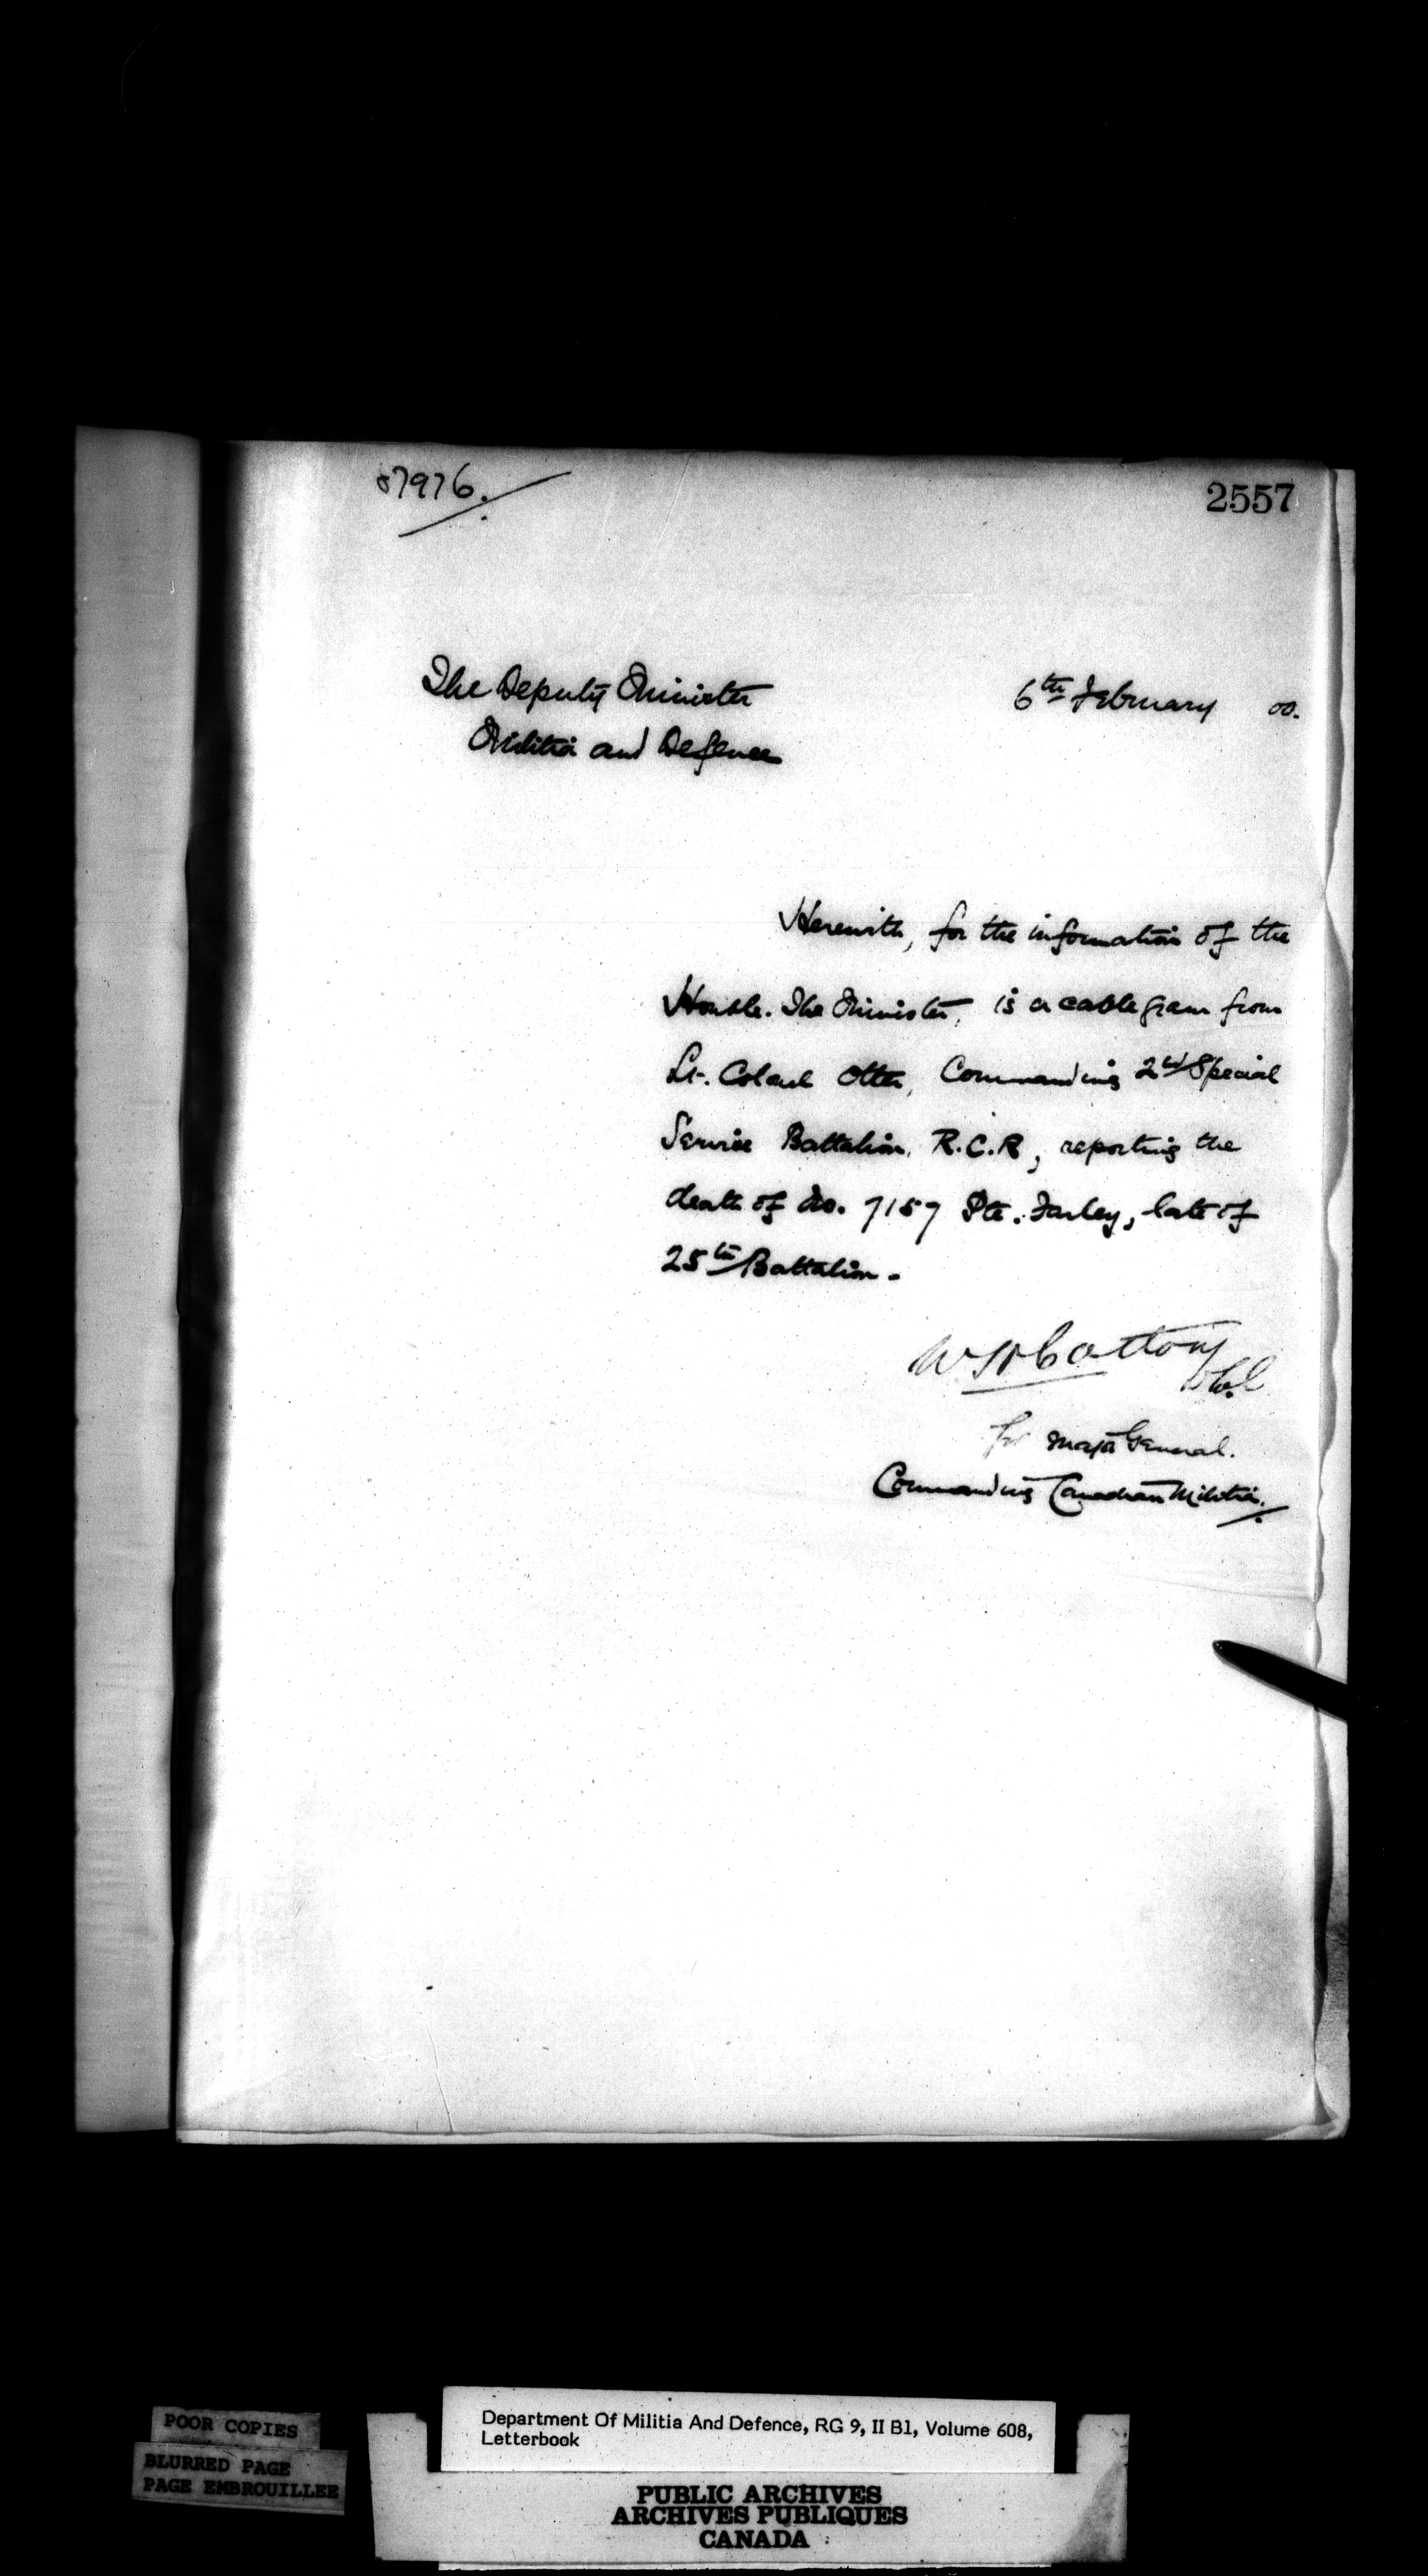 87976.
2557
The Deputy Minister
6th February 00.
Militia and Defence
Herewith, for the information of the
Honble. The Minister, is a cablegram from
Lt. Colonel Otter, Commanding 2nd Special
Service Battalion, R.C.R, reporting the
death of No. 7157 Pte. Farley, late of
25th Battalion.
for Major General.
Commanding Canadian Militia.
POOR COPIES
BLURRED PAGE
PAGE EMBROUILLEE
Department Of Militia And Defence, RG 9, II B1, Volume 608,
Letterbook
PUBLIC ARCHIVES
ARCHIVES PUBLIQUES
CANADA